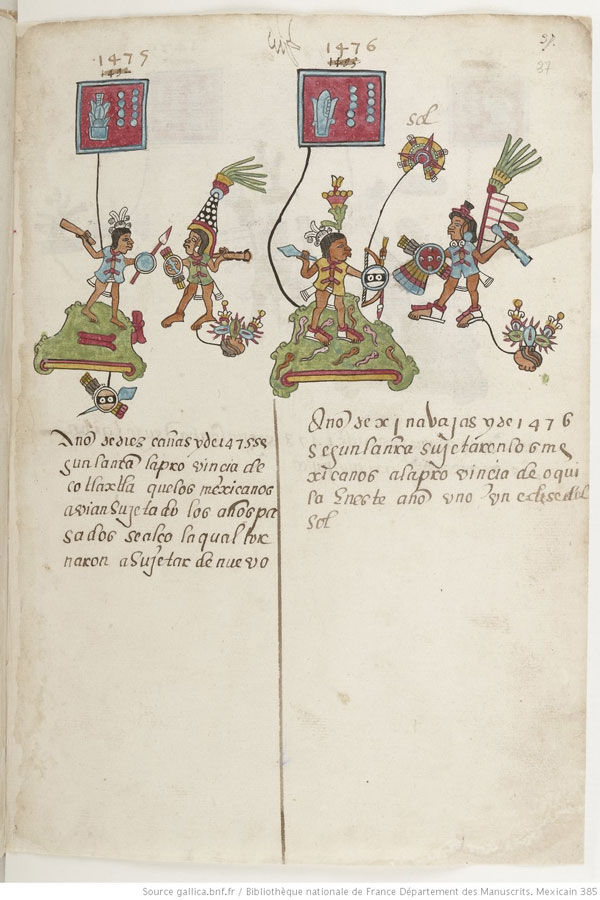 1475
1476
37
sol
Año de diez cañas y de 1475 se
gun santa la pro vincia de
cotlaxtla que los mexicanos
avian sujetado los años pa
sados se alço la qual tor
naron a sujetar de nuevo
Año de xi navajas y de 1476
segun la nra sujetaron los me
xicanos a la pro vincia de o qui
la Eneste año uno Un eclise del
sol
Source gallica.bnf.fr / Bibliothèque nationale de France Département des Manuscrits. Mexicain 385